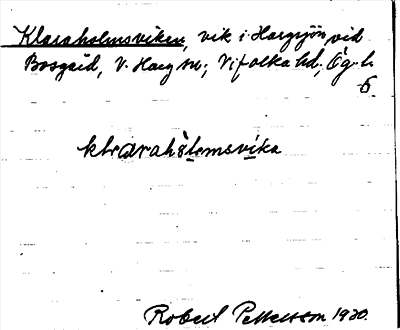 Klaraholmsviken, vik i Hargsjön vid
Bosgård, V. Harg sn; Vifolka hd, Ög. l.
6.
klearahòlemsvika
Robert Pettersson 1920.